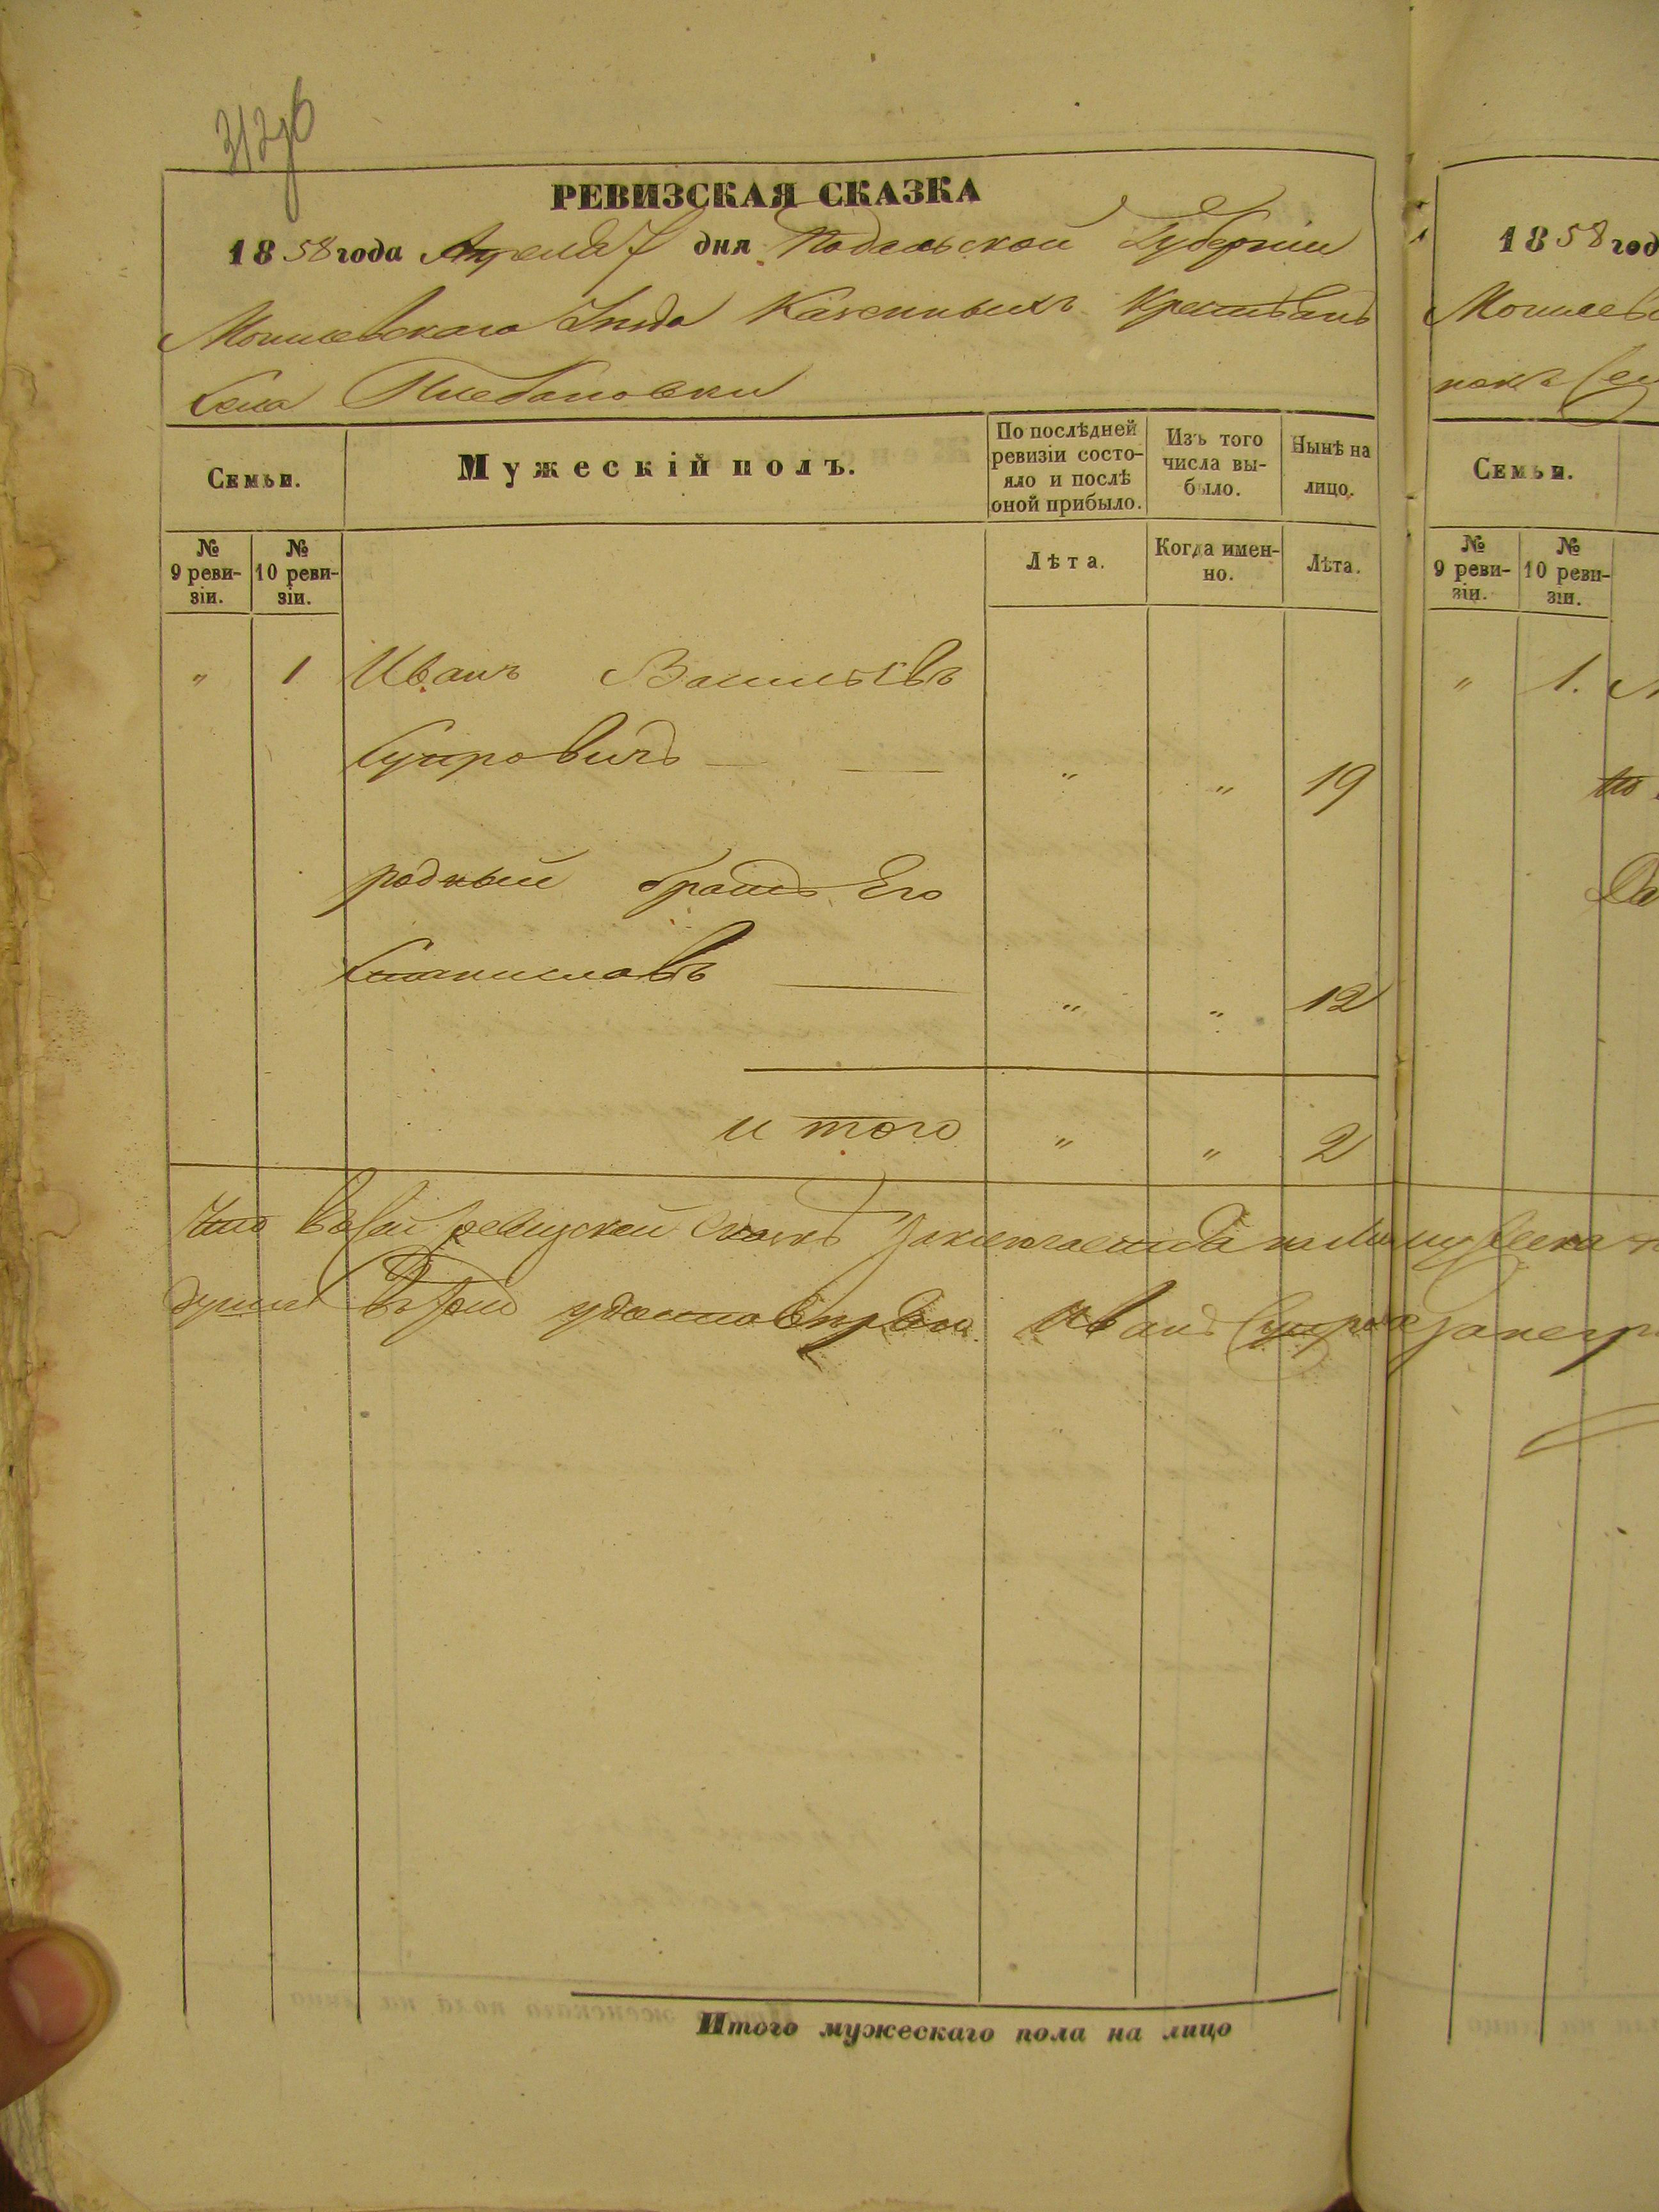 РЕВИЗСКАЯ СКАЗКА
1858 года Апреля 7 дня Подольской Губерніи
Могилевскаго Уезда Казенныхъ Крестьянъ
Села Плебановки
Семьи.
Мужескій полъ.
По послѣдней ревизіи состо-
яло и послѣ
оной прибыло.
Изъ того
числа вы-
было.
Нынѣ на
лицо.
№
9 реви-
зіи.
№
10 реви-
зіи.
Лѣта.
Когда имен-
но.
Лѣта.
„ 1 Иванъ Васильевъ
Супровичъ — — „ „ 19
родный братъ Его
Станиславъ — „ „ 12
и того „ „ 2
Что въ сей ревизской Сказкѣ
душа въ томъ Иванъ
Итого мужескаго пола на лицо
1858 год
Могилев
Семьи.
№
9 реви-
зіи.
№
10 реви-
зіи.
„ 1.